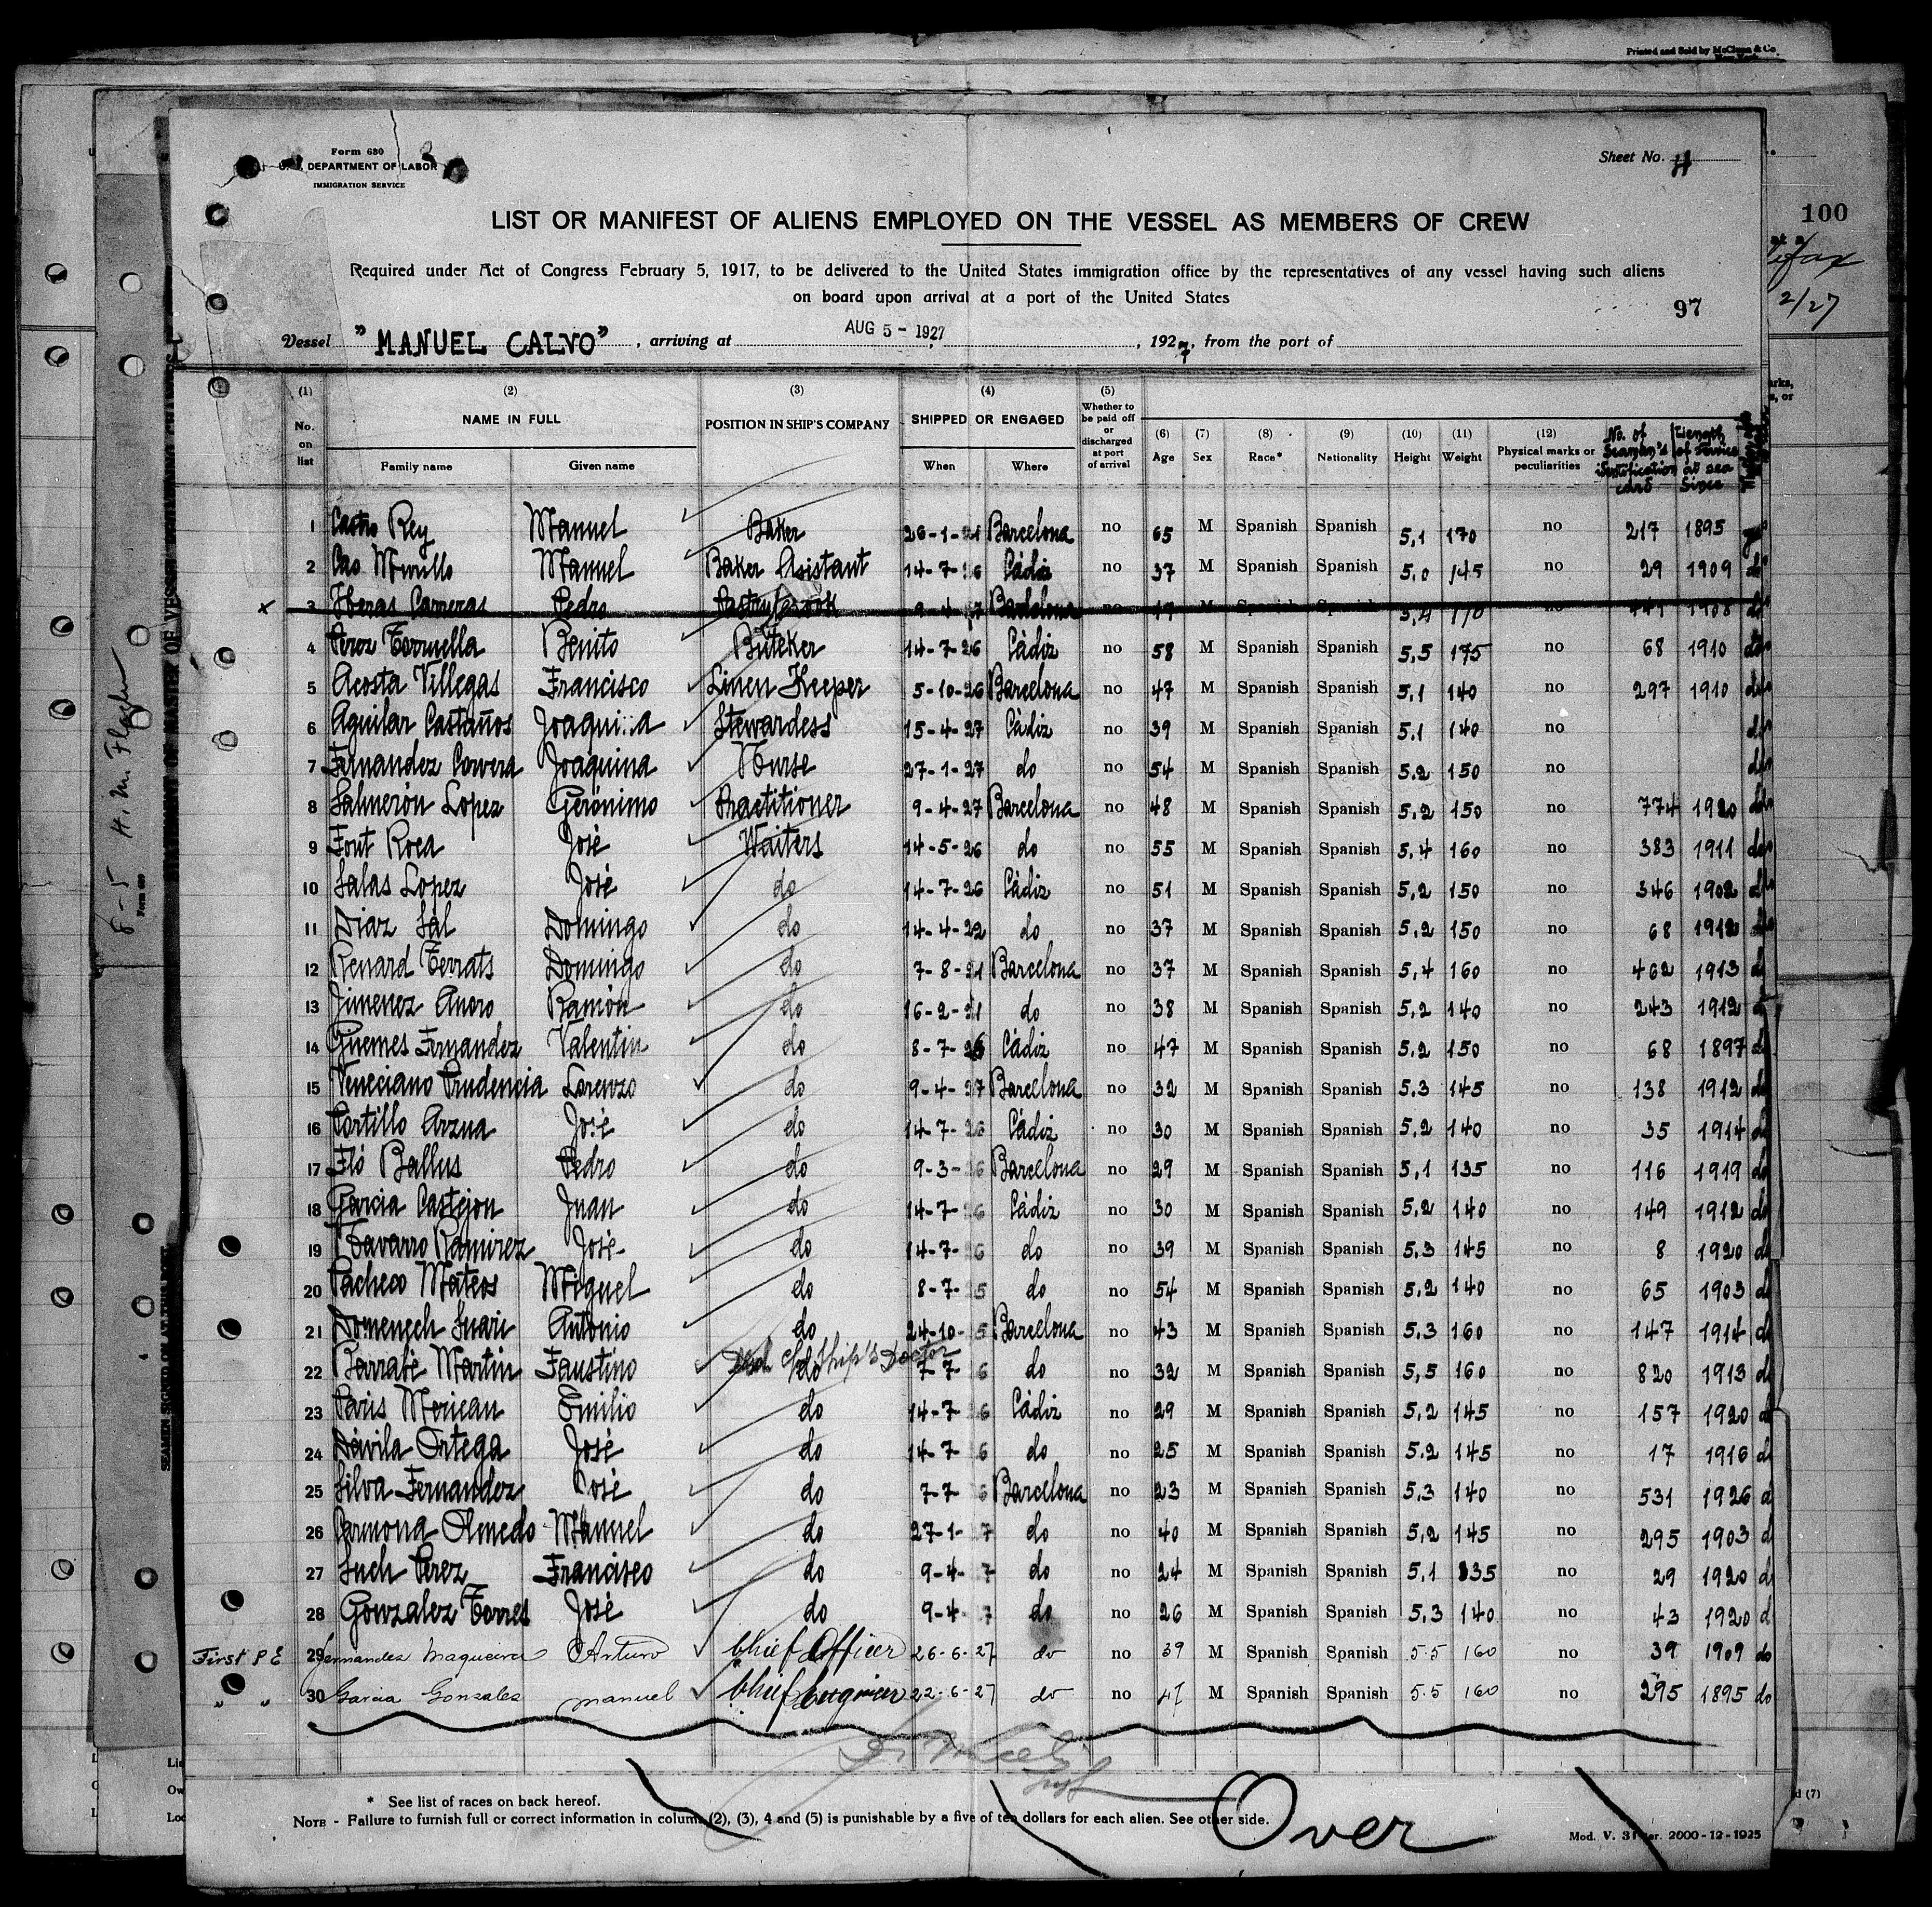 Printed and Sold by McClunn & Co
New York
Form 680
U. S. DEPARTMENT OF LABOR
IMMIGRATION SERVICE
Sheet No. 4
100
LIST OR MANIFEST OF ALIENS EMPLOYED ON THE VESSEL AS MEMBERS OF CREW
Required under Act of Congress February 5, 1917, to be delivered to the United States immigration office by the representatives of any vessel having such aliens
on board upon arrival at a port of the United States
97
2/27
Vessel "MANUEL CALVO", arriving at AUG 5 - 1927, 1927, from the port of
(1) No. on list (2) NAME IN FULL Family name Given name (3) POSITION IN SHIP'S COMPANY (4) SHIPPED OR ENGAGED When Where (5) Whether to be paid off or discharged at port of arrival (6) Age (7) Sex (8) Race* (9) Nationality (10) Height (11) Weight (12) Physical marks or peculiarities No. of Seaman's Length of Service at sea since
1 Castro Rey Manuel Baker 26-1-21 Barcelona no 65 M Spanish Spanish 5,1 170 no 217 1895 yes
2 Cao Murillo Manuel Baker Asistant 14-7-26 Cádiz no 37 M Spanish Spanish 5,0 145 no 29 1909 do
x 3 Carreras Pedro Barcelona no M Spanish Spanish 5,4 170 no 1908 do
4 Perez Benito 14-7-26 Cádiz no 58 M Spanish Spanish 5,5 175 no 68 1910 do
5 Acosta Villegas Francisco Linen Keeper 5-10-26 Barcelona no 47 M Spanish Spanish 5,1 140 no 297 1910 do
6 Aguilar Castaños Joaquina Stewardess 15-4-27 Cádiz no 39 M Spanish Spanish 5,1 140 no do
7 Fernandez Corvera Joaquina Nurse 27-1-27 do no 54 M Spanish Spanish 5,2 150 no do
8 Salmerón Lopez Gerónimo Practitioner 9-4-27 Barcelona no 48 M Spanish Spanish 5,2 150 no 774 1920 do
9 Font Roca José Waiters 14-5-26 do no 55 M Spanish Spanish 5,4 160 no 383 1911 do
10 Salas Lopez José do 14-7-26 Cádiz no 51 M Spanish Spanish 5,2 150 no 346 1902 do
11 Diaz Sal Domingo do 14-4-22 do no 37 M Spanish Spanish 5,2 150 no 68 1912 do
12 Renard Terrats Domingo do 7-8-21 Barcelona no 37 M Spanish Spanish 5,4 160 no 462 1913 do
13 Jimenez Ramón do 16-2-21 do no 38 M Spanish Spanish 5,2 140 no 243 1912 d
14 Guemes Fernandez Valentin do 8-7-26 Cádiz no 47 M Spanish Spanish 5,2 150 no 68 1897 do
15 Veneciano Prudencia Lorenzo do 9-4-27 Barcelona no 32 M Spanish Spanish 5,3 145 no 138 1912 do
16 Portillo Arzua José do 14-7-26 Cádiz no 30 M Spanish Spanish 5,2 140 no 35 1914 do
17 Fló Ballus Pedro do 9-3-26 Barcelona no 29 M Spanish Spanish 5,1 135 no 116 1919 do
18 Garcia Castejon Juan do 14-7-26 Cádiz no 30 M Spanish Spanish 5,2 140 no 149 1912 do
19 Navarro Ramirez José do 14-7-26 do no 39 M Spanish Spanish 5,3 145 no 8 1920 d
20 Pacheco Mateos Miguel do 8-7-25 do no 54 M Spanish Spanish 5,2 140 no 65 1903 d
21 Domenech Suari Antonio do 24-10-5 Barcelona no 43 M Spanish Spanish 5,3 160 no 147 1914 d
22 Barrabé Martin Faustino do Ship's Doctor 7-7-6 do no 32 M Spanish Spanish 5,5 160 no 820 1913 d
23 Paris Emilio do 14-7-26 Cádiz no 29 M Spanish Spanish 5,2 145 no 157 1920 d
24 Dávila Ortega José do 14-7-6 do no 25 M Spanish Spanish 5,2 145 no 17 1916 d
25 Silva Fernandez José do 7-7-6 Barcelona no 23 M Spanish Spanish 5,3 140 no 531 1926 d
26 Carmona Olmedo Manuel do 27-1-7 do no 40 M Spanish Spanish 5,2 145 no 295 1903 d
27 Such Perez Francisco do 9-4-7 do no 24 M Spanish Spanish 5,1 135 no 29 1920 d
28 Gonzalez Torres José do 9-4-7 do no 26 M Spanish Spanish 5,3 140 no 43 1920 d
First P E 29 Fernandez Maqueira Arturo Chief Officer 26-6-27 do no 39 M Spanish Spanish 5.5 160 no 39 1909 do
" " 30 Garcia Gonzales Manuel Chief Engineer 22-6-27 do no 47 M Spanish Spanish 5.5 160 no 295 1895 do
* See list of races on back hereof.
NOTE - Failure to furnish full or correct information in colum (2), (3), 4 and (5) is punishable by a five of ten dollars for each alien. See other side.
Over
Mod. V. 31 2000-12-1925
8-5 H. M. Flagler
Form 689